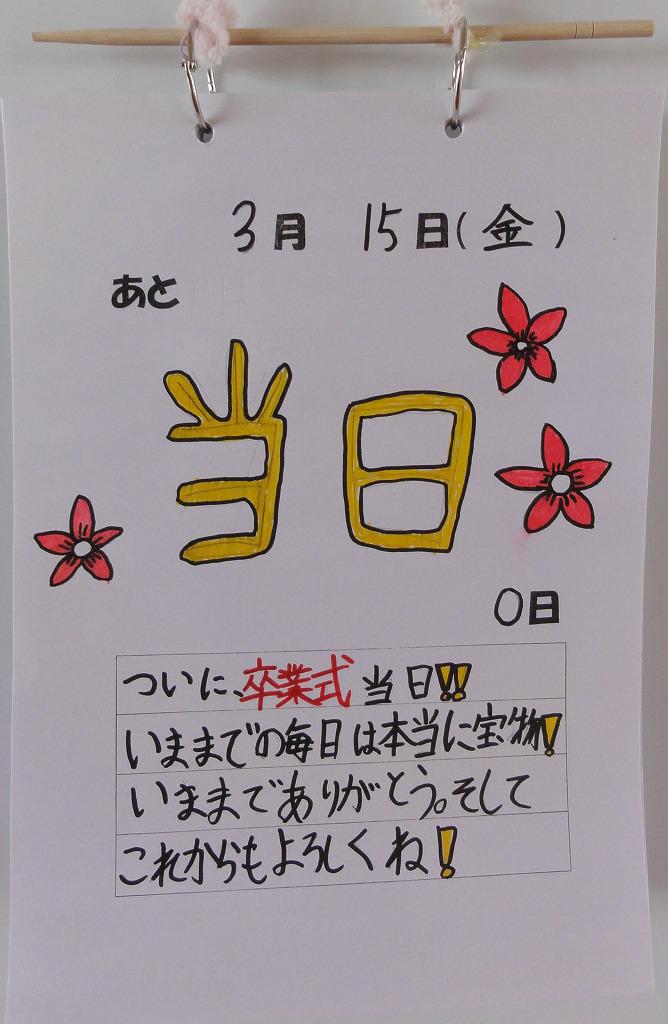 3月 15日(金)
あと
当日
0日
ついに、卒業式当日!!
いままでの毎日は本当に宝物!
いままでありがとう。そして
これからもよろしくね!